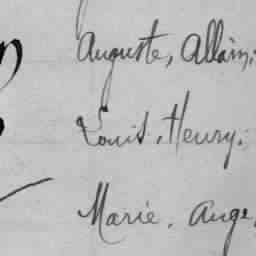 Auguste, Allain,
Louis, Henry,
Marie, Ange,